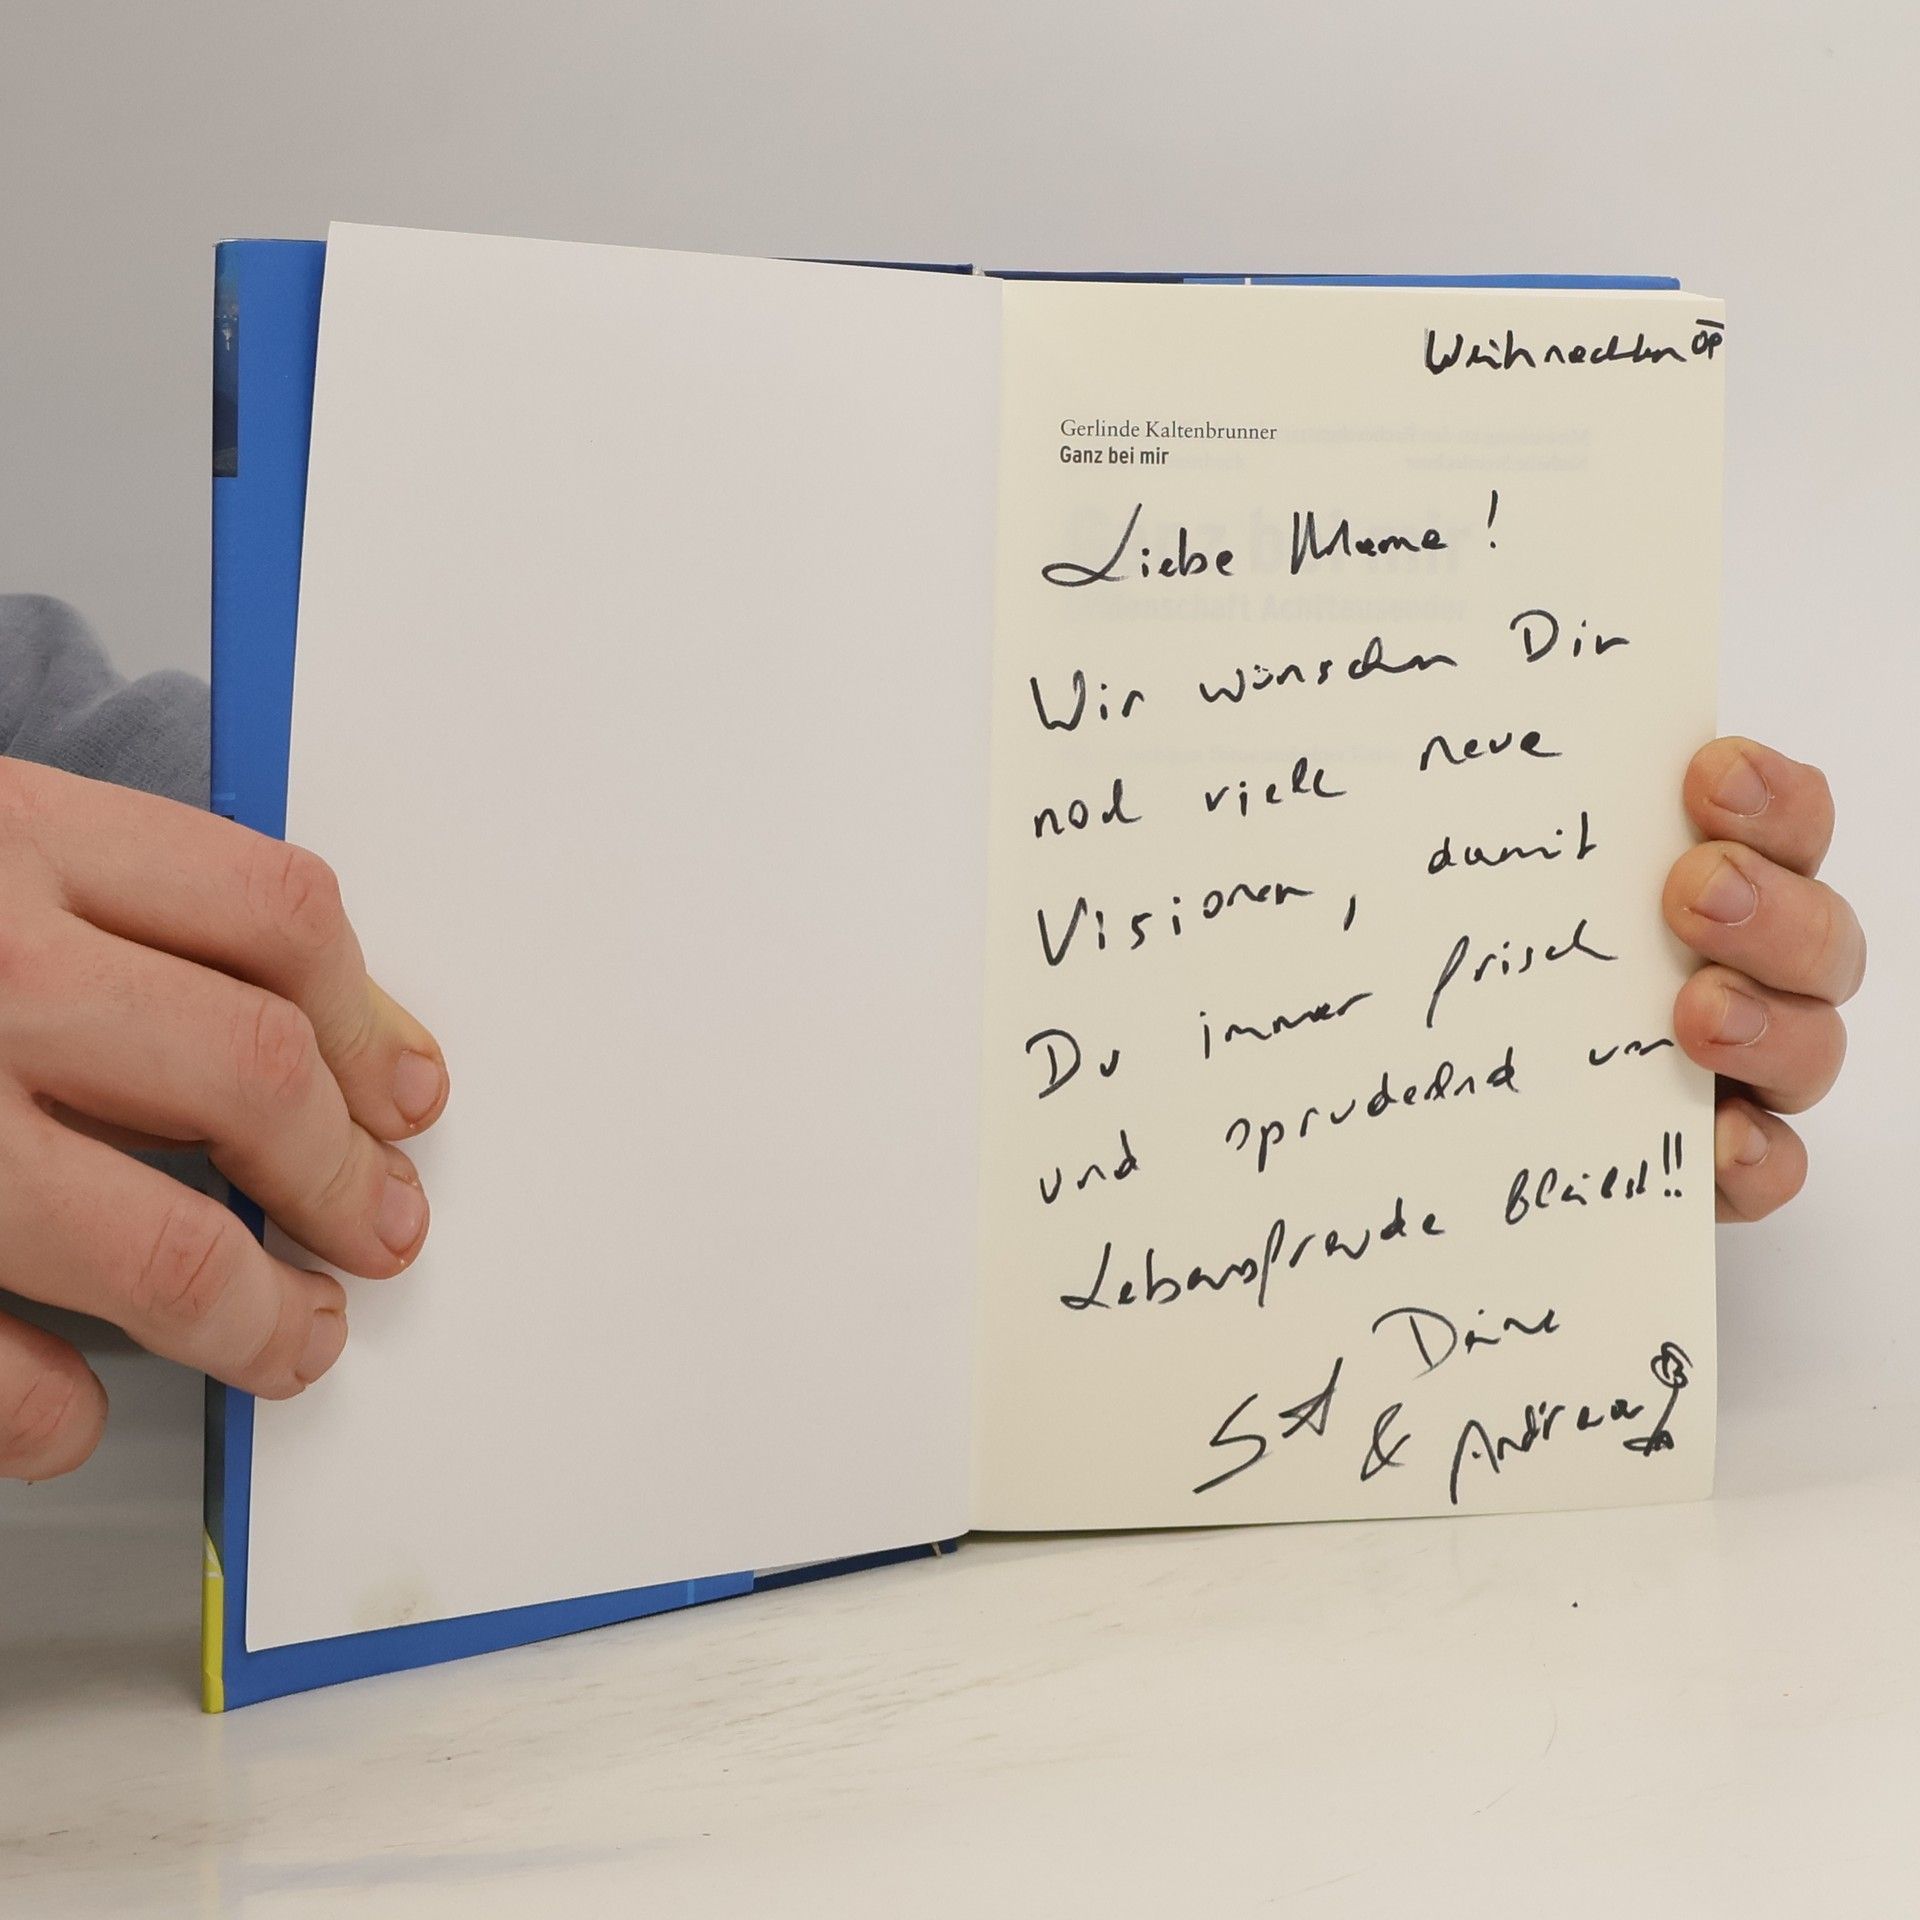 Weihnachten 09
Gerlinde Kaltenbrunner
Ganz bei mir
Liebe Mama!
Wir wünschen Dir
noch viele neue
Visionen, damit
Du immer frisch
und sprudelnd von
Lebensfreude bleibst!!
Deine
& Andreas